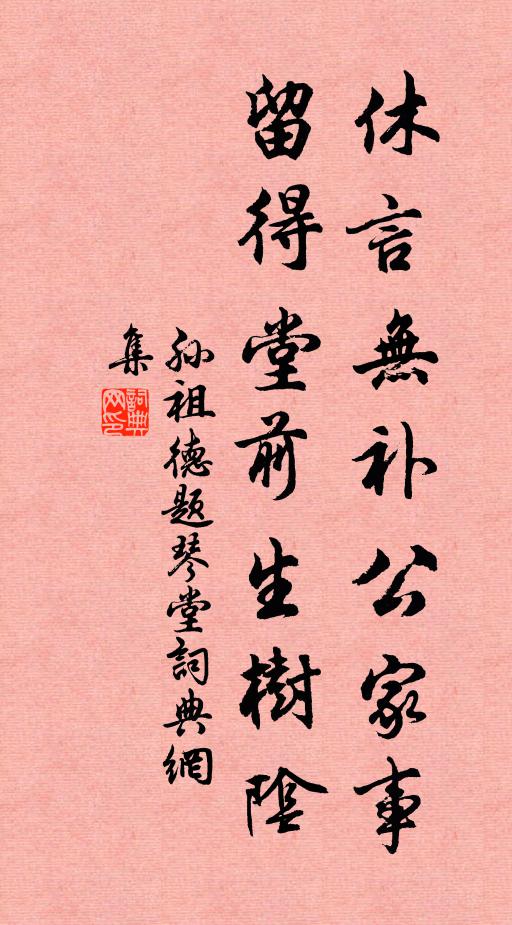 休言無补公家事
留得堂前生樹陰
孙祖德题琴堂詞典網
集
詞典
网印